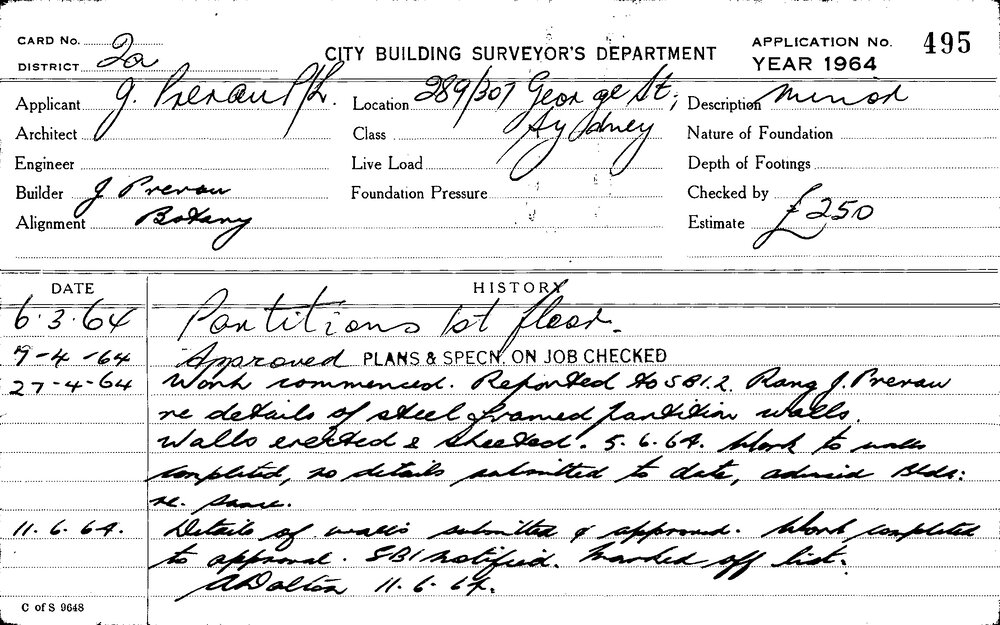 CARD No. 2a
CITY BUILDING SURVEYOR'S DEPARTMENT
APPLICATION No. 495
DISTRICT
YEAR 1964
Applicant J. Prerau P/L. Location 289/307 George St; Description Minor
Architect Class Sydney Nature of Foundation
Engineer Live Load Depth of Footings
Builder J Prerau Foundation Pressure Checked by
Alignment Botany Estimate £250
DATE HISTORY
6.3.64 Partitions 1st floor.
9-4-64 Approved PLANS & SPECN. ON JOB CHECKED
27-4-64 Work commenced. Reported to SBI.2. Rang J. Prerau
re details of steel framed partition walls.
Walls erected & sheeted. 5.6.64. Work to walls
completed, no details submitted to date, advised Bldr:
re. same.
11.6.64. Details of walls submitted & approved. Work completed
to approval. SBI notified. Marked off list.
ADalton 11.6.64.
C of S 9648